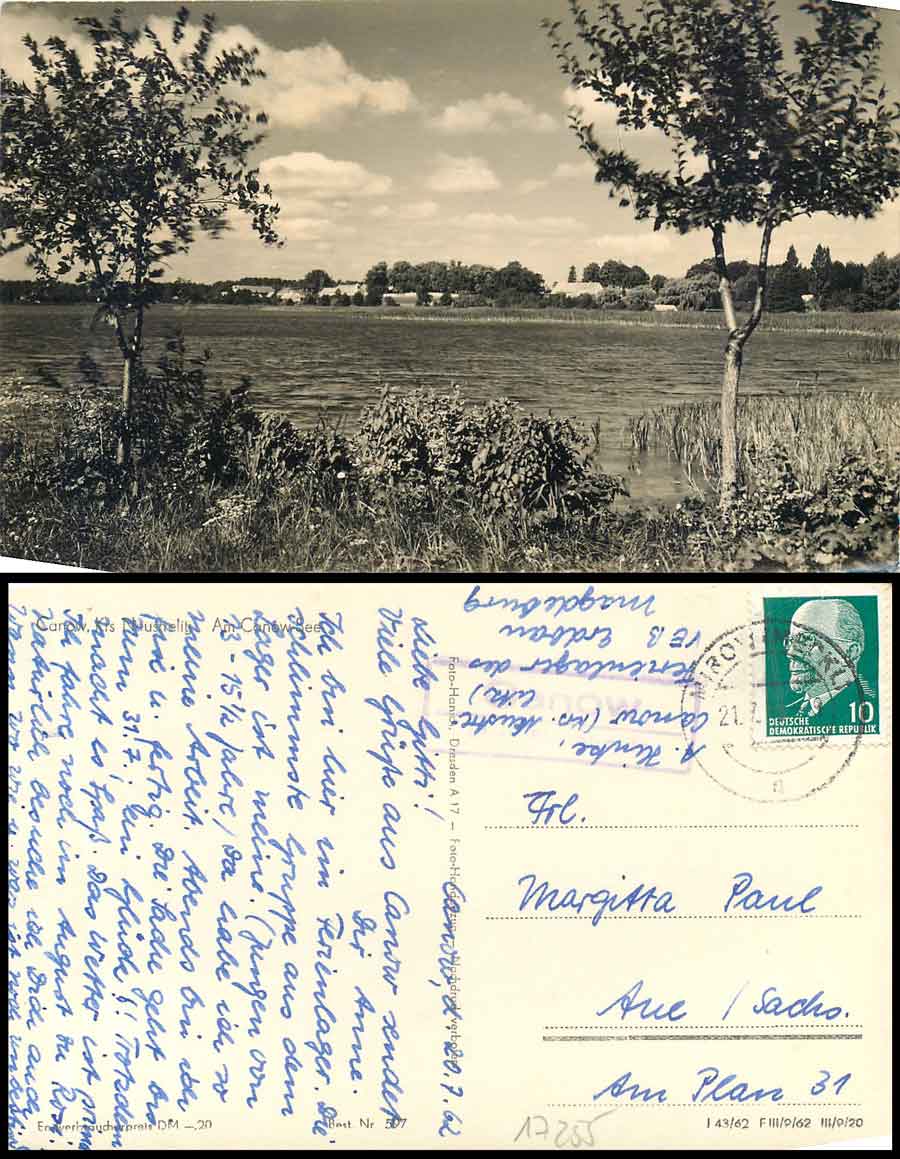 Canow, Krs. Neustrelitz Am Canow-See
Canow, d. 20.7.62
Liebe Gitti!
Viele Grüße aus Canow sendet
Dir Anne.
Ich bin hier im Ferienlager. Die
schlimmste Gruppe aus dem
Lager ist meine. (Jungen von
13-15½ Jahre) Da habe ich so
meine Arbeit. Abends bin ich
fix u. fertig. Die Sache geht bis
zum 31.7., ein Glück! Trotzdem
macht es Spaß. Das Wetter ist
Ich fahre noch im August zu
Natürlich besuche ich Dich auch
Foto-Handabzug - Nachdruck verboten
A. Hinke,
Canow (Kr. Neustrelitz)
Ferienlager des
VEB Erdbau
Magdeburg
MIROW (MECKL)
21.7.
10
DEUTSCHE
DEMOKRATISCHE REPUBLIK
Frl.
Margitta Paul
Aue / Sachs.
Am Plan 31
Endverbraucherpreis DM -,20
Best. Nr. 597
17255
I 43/62 F III/9/62 III/9/20